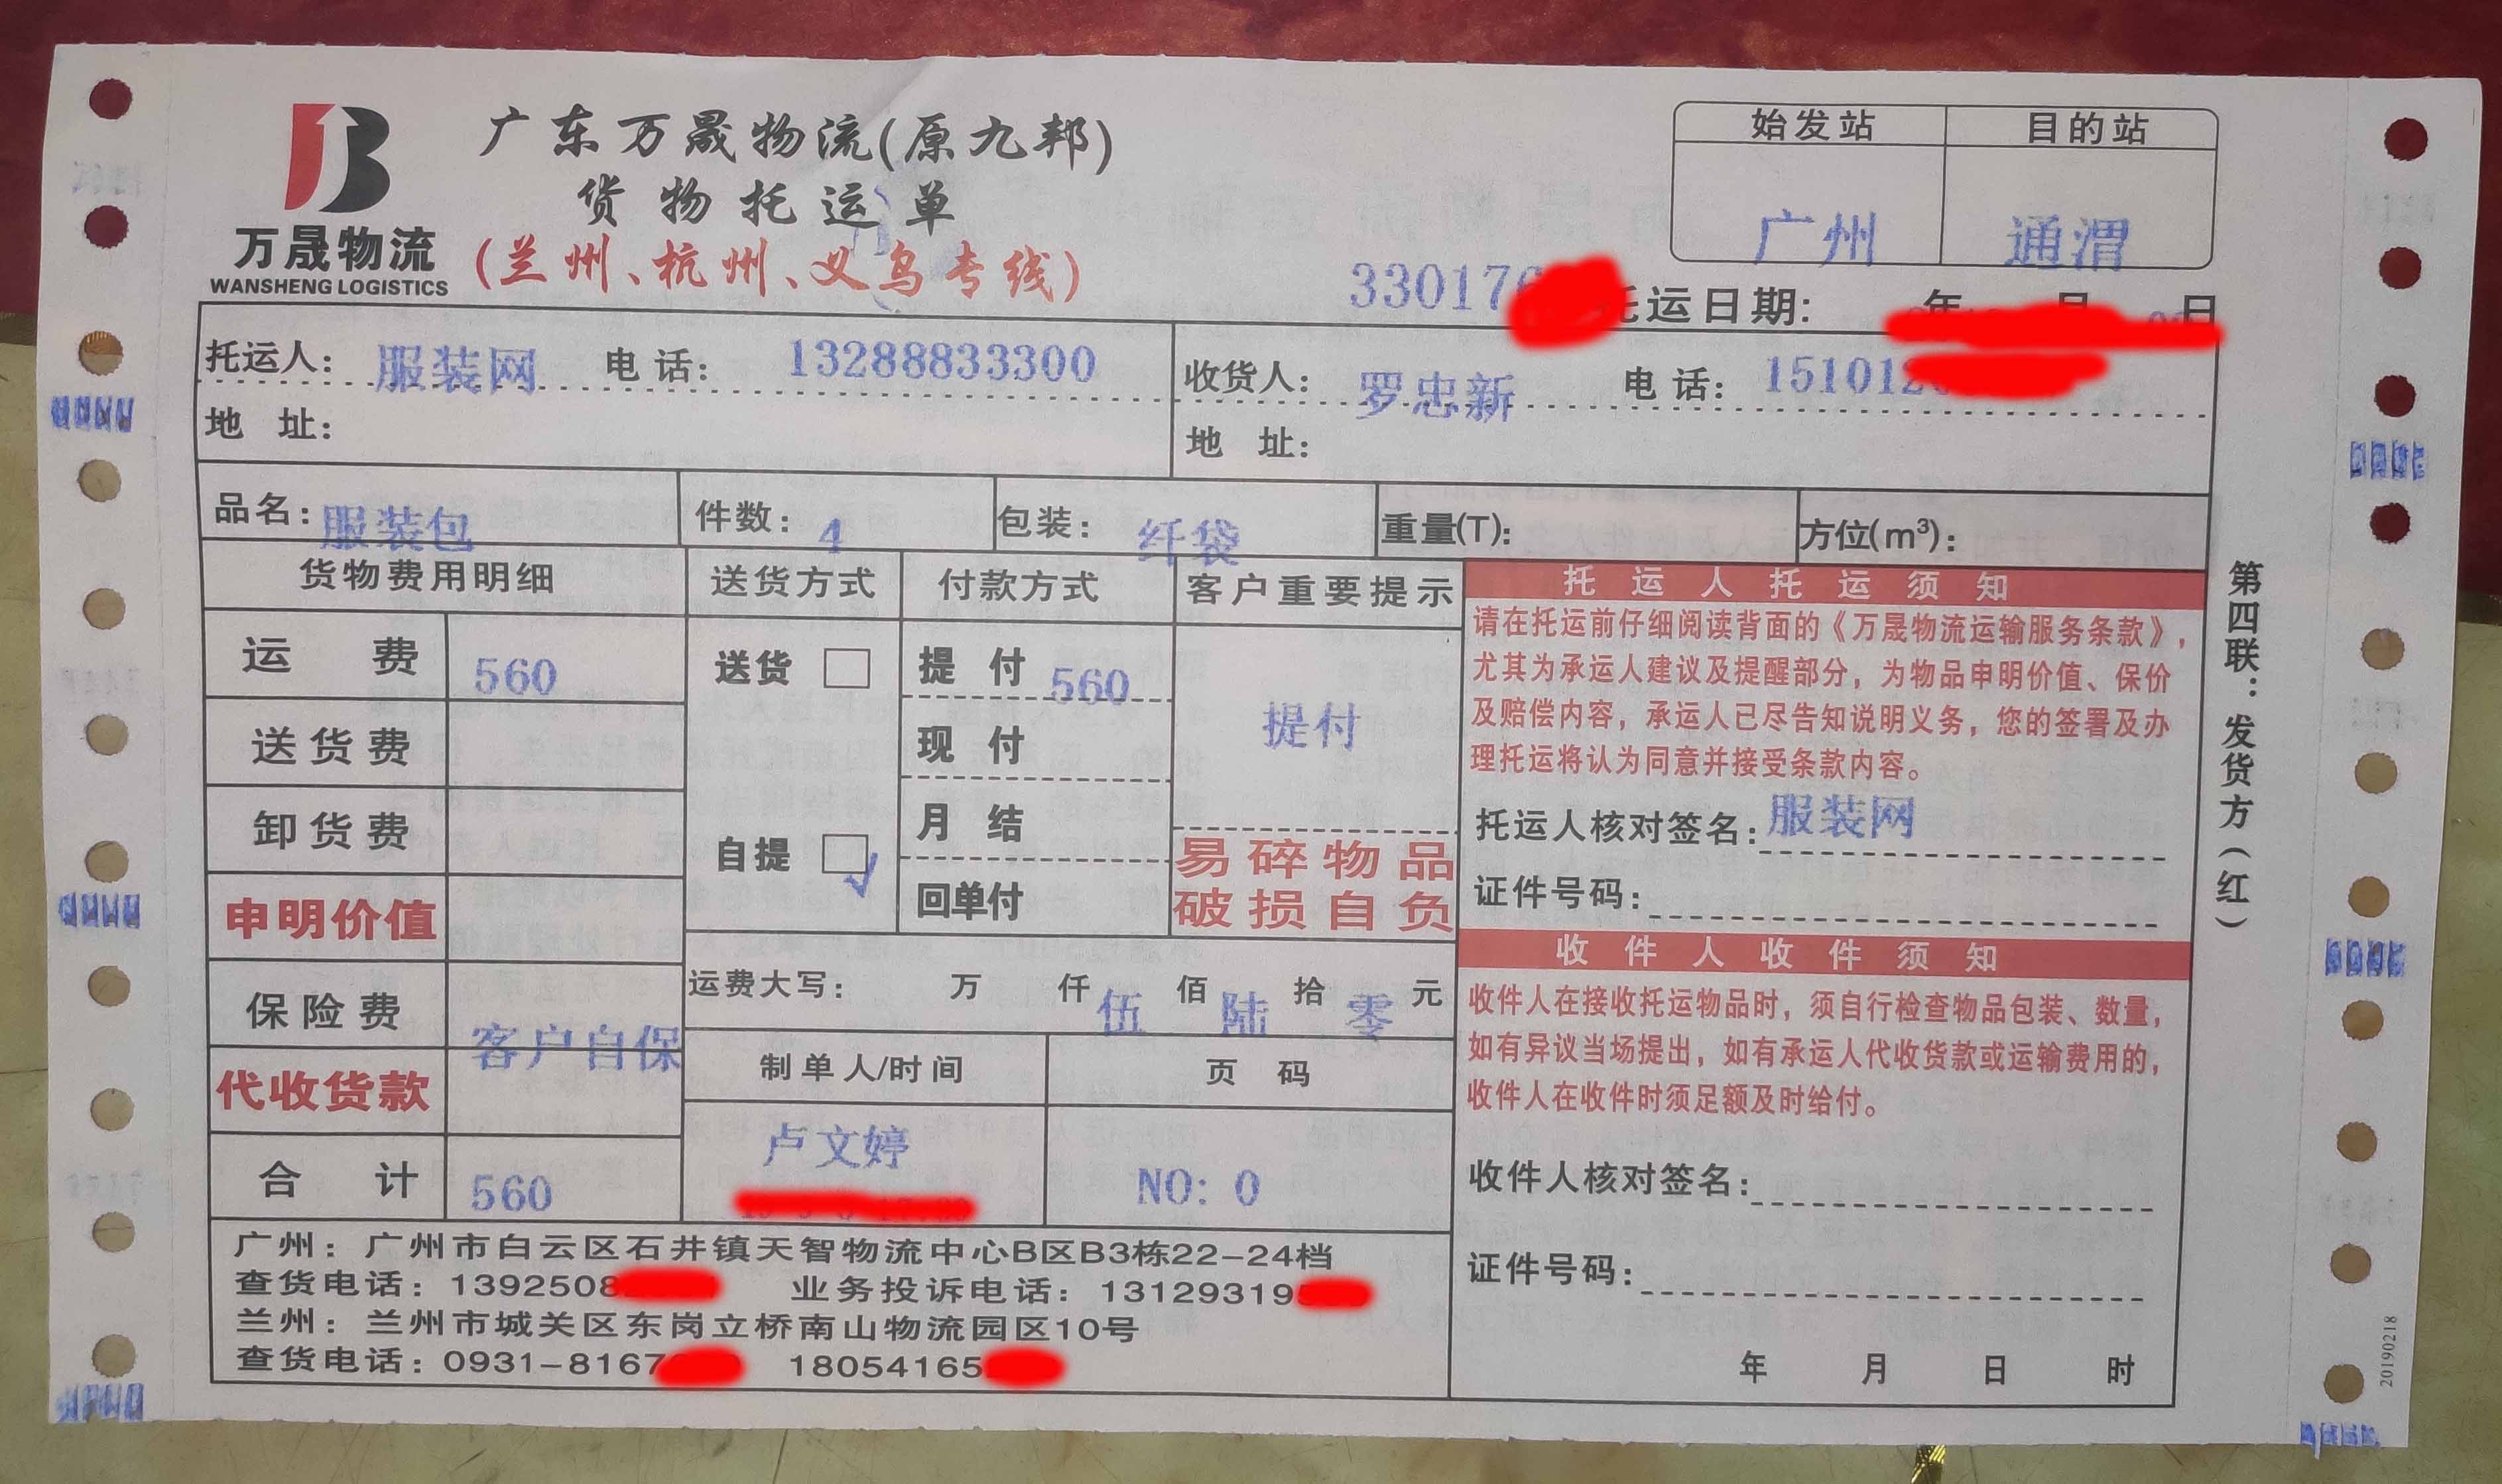 广东万晟物流(原九邦)
货物托运单
(兰州、杭州、义乌专线)
万晟物流
WANSHENG LOGISTICS
始发站 目的站
广州 通渭
330176 托运日期: 年 月 日
托运人: 服装网 电话: 13288833300 收货人: 罗忠新 电话: 151012
地址: 地址:
品名: 服装包 件数: 4 包装: 纤袋 重量(T): 方位(m³):
货物费用明细 送货方式 付款方式 客户重要提示
运费 560 送货 提付 560 提付
送货费 现付
卸货费 自提 月结
申明价值 回单付
易碎物品
破损自负
保险费 客户自保
运费大写: 万 仟 伍 佰 陆 拾 零 元
代收货款 制单人/时间 页码
合计 560 卢文婷 NO: 0
托运人托运须知
请在托运前仔细阅读背面的《万晟物流运输服务条款》,
尤其为承运人建议及提醒部分,为物品申明价值、保价
及赔偿内容,承运人已尽告知说明义务,您的签署及办
理托运将认为同意并接受条款内容。
托运人核对签名: 服装网
证件号码:
收件人收件须知
收件人在接收托运物品时,须自行检查物品包装、数量,
如有异议当场提出,如有承运人代收货款或运输费用的,
收件人在收件时须足额及时给付。
收件人核对签名:
证件号码:
年 月 日 时
广州: 广州市白云区石井镇天智物流中心B区B3栋22-24档
查货电话: 1392508 业务投诉电话: 131293195
兰州: 兰州市城关区东岗立桥南山物流园区10号
查货电话: 0931-8167 18054165
第四联: 发货方(红)
20190218